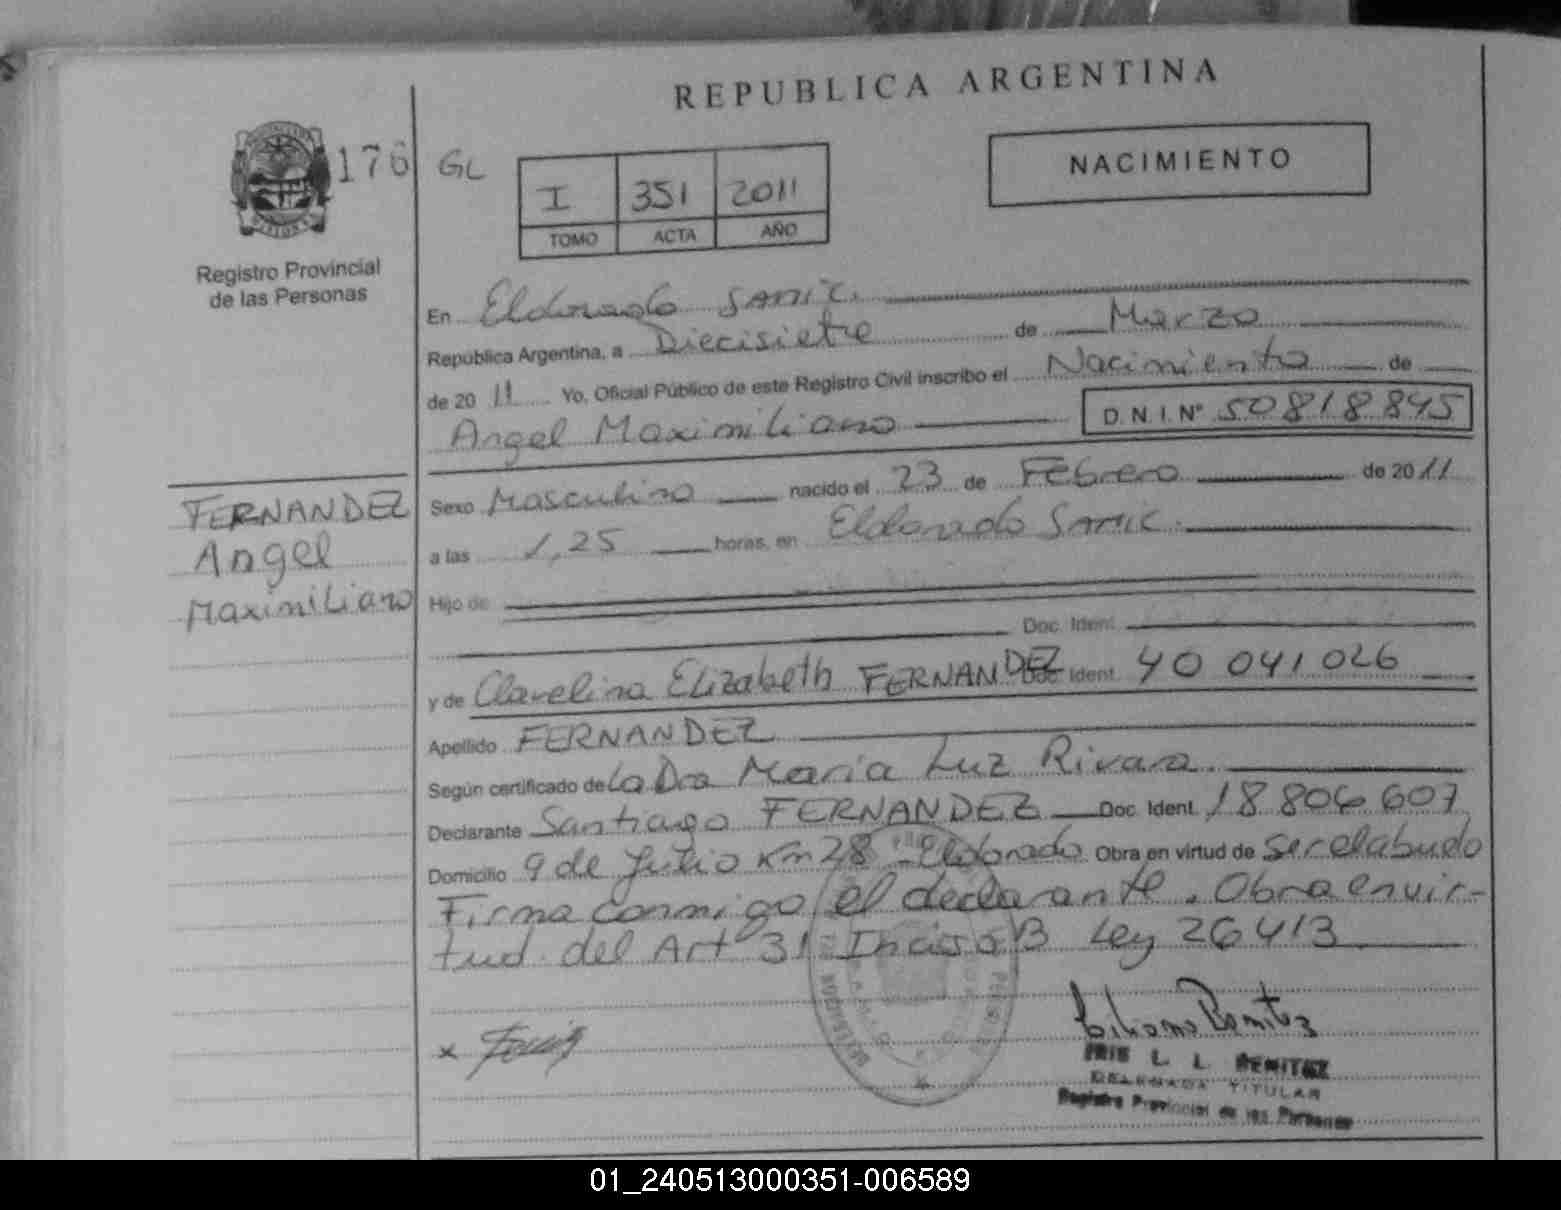 REPUBLICA ARGENTINA
176 GL
I 351 2011
TOMO ACTA AÑO
NACIMIENTO
Registro Provincial
de las Personas
En Eldorado SAMIC.
República Argentina, a Diecisiete de Marzo
de 20 11 Yo, Oficial Público de este Registro Civil inscribo el Nacimiento de
Angel Maximiliano D.N.I. Nº 50818845
FERNANDEZ
Angel
Maximiliano
Sexo Masculino nacido el 23 de Febrero de 2011
a las 1,25 horas, en Eldorado SAMIC.
Hijo de
Doc. Ident.
y de Clavelina Elizabeth FERNANDEZ Doc. Ident. 40 041 026
Apellido FERNANDEZ
Según certificado de La Dra Maria Luz Rivara.
Declarante Santiago FERNANDEZ Doc. Ident. 18 806 607
Domicilio 9 de Julio Km 28 - Eldorado Obra en virtud de ser el abuelo
Firma conmigo el declarante. Obra en vir-
tud del Art 31 Inciso B Ley 26413
x
Liliana Benitez
IRIS L. L. BENITEZ
DELEGADA TITULAR
Registro Provincial de las Personas
01_240513000351-006589